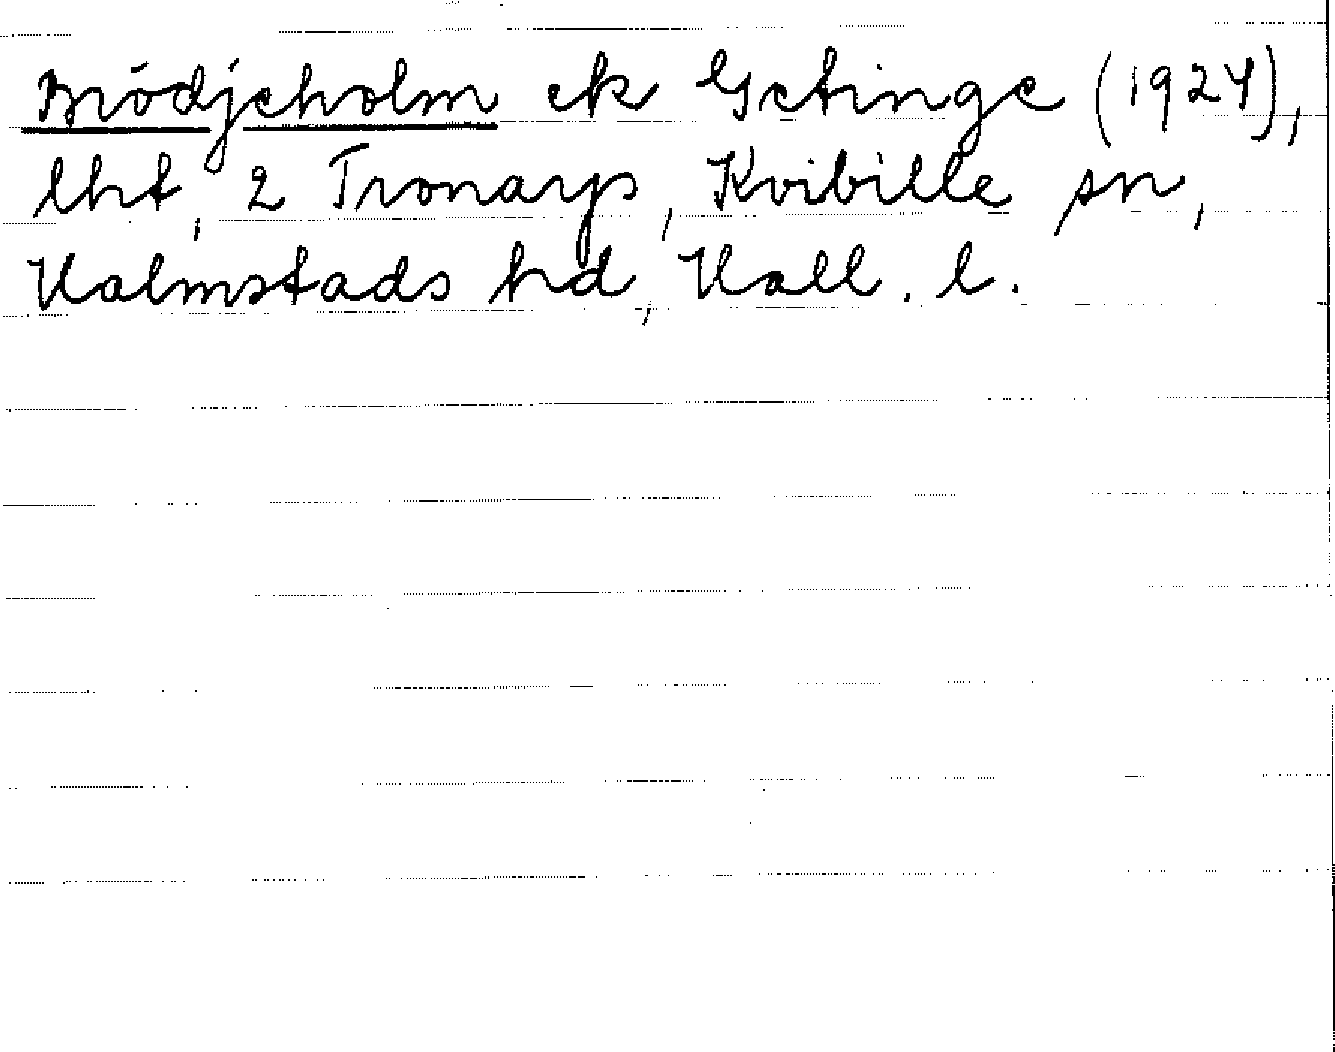 Brödjeholm ek Getinge (1924),
lht, 2 Tronarp, Kvibille sn,
Halmstads hd, Hall. l.